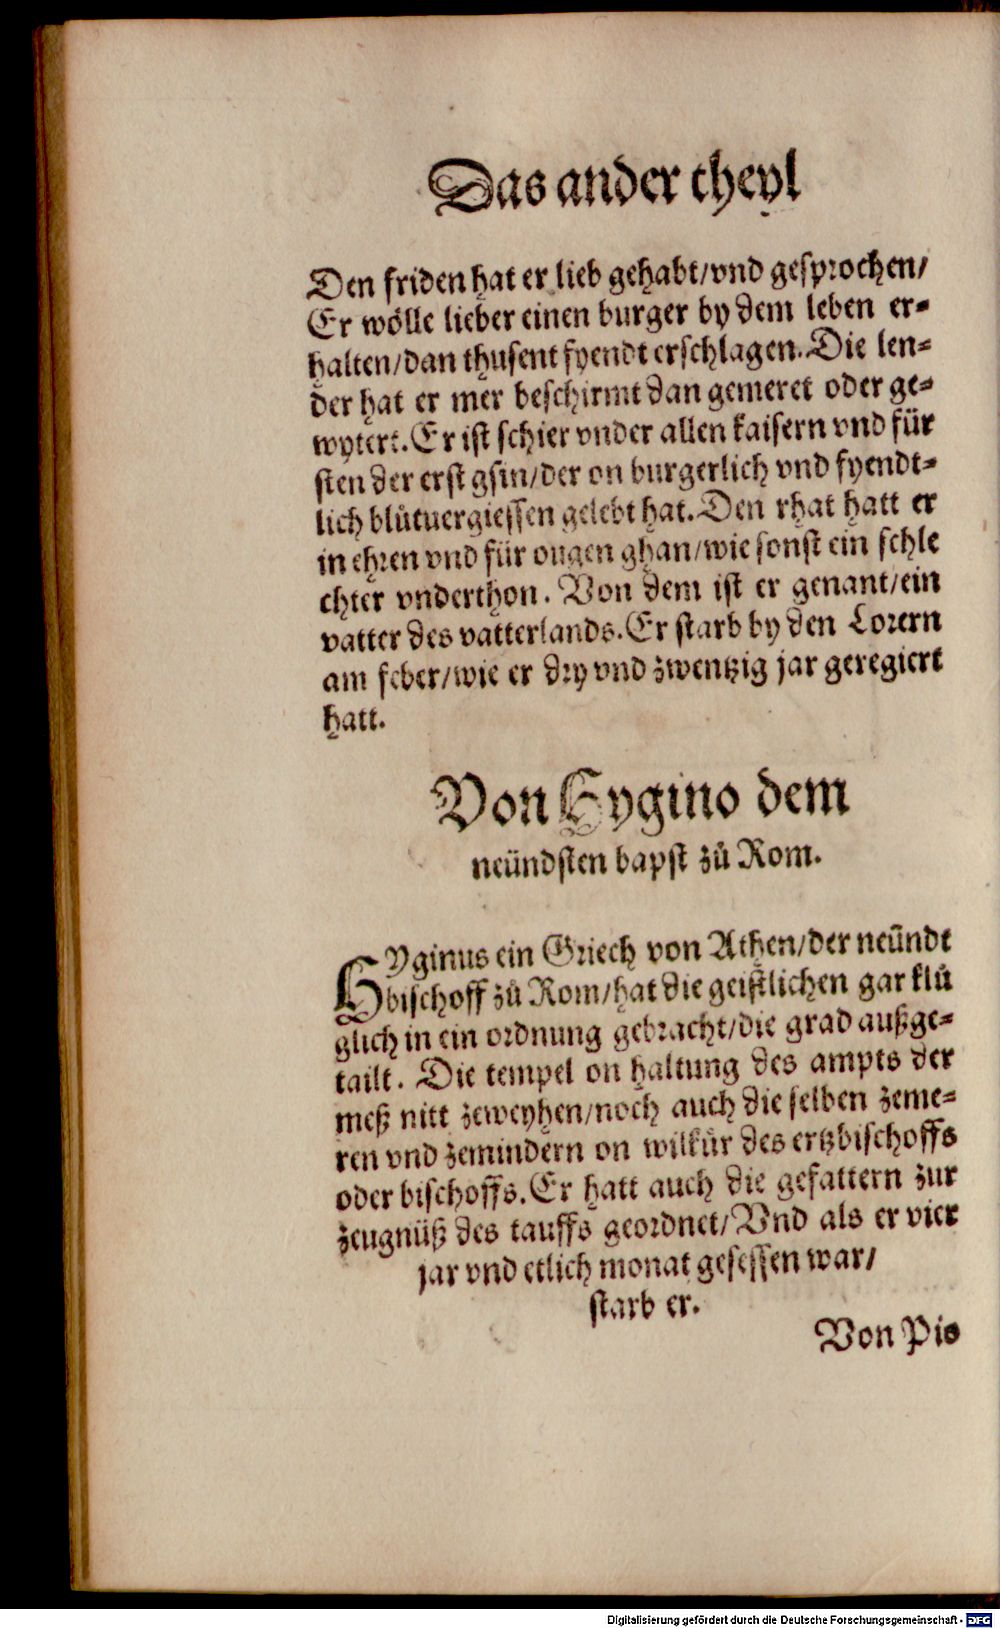 Das ander theyl
Den friden hat er lieb gehabt/vnd gesprochen/
Er wölle lieber einen burger by dem leben er⸗
halten/dan thusent fyendt erschlagen. Die len⸗
der hat er mer beschirmt dan gemeret oder ge⸗
wytert. Er ist schier vnder allen kaisern vnd für
sten der erst gsin/der on burgerlich vnd fyendt⸗
lich blůtuergiessen gelebt hat. Den rhat hatt er
in ehren vnd für ougen ghan/wie sonst ein schle
chter vnderthon. Von dem ist er genant/ein
vatter des vatterlands. Er starb by den Lorern
am feber/wie er dry vnd zwentzig jar geregiert
hatt.
Von Hygino dem
neündsten bapst zů Rom.
HYginus ein Griech von Athen/der neündt
bischoff zů Rom/hat die geistlichen gar klů
glich in ein ordnung gebracht/die grad außge⸗
tailt. Die tempel on haltung des ampts der
meß nitt zeweyhen/noch auch die selben zeme⸗
ren vnd zemindern on wilkür des ertzbischoffs
oder bischoffs. Er hatt auch die gefattern zur
zeugnüß des tauffs geordnet/Vnd als er vier
jar vnd etlich monat gesessen war/
starb er.
Von Pio
Digitalisierung gefördert durch die Deutsche Forschungsgemeinschaft - DFG